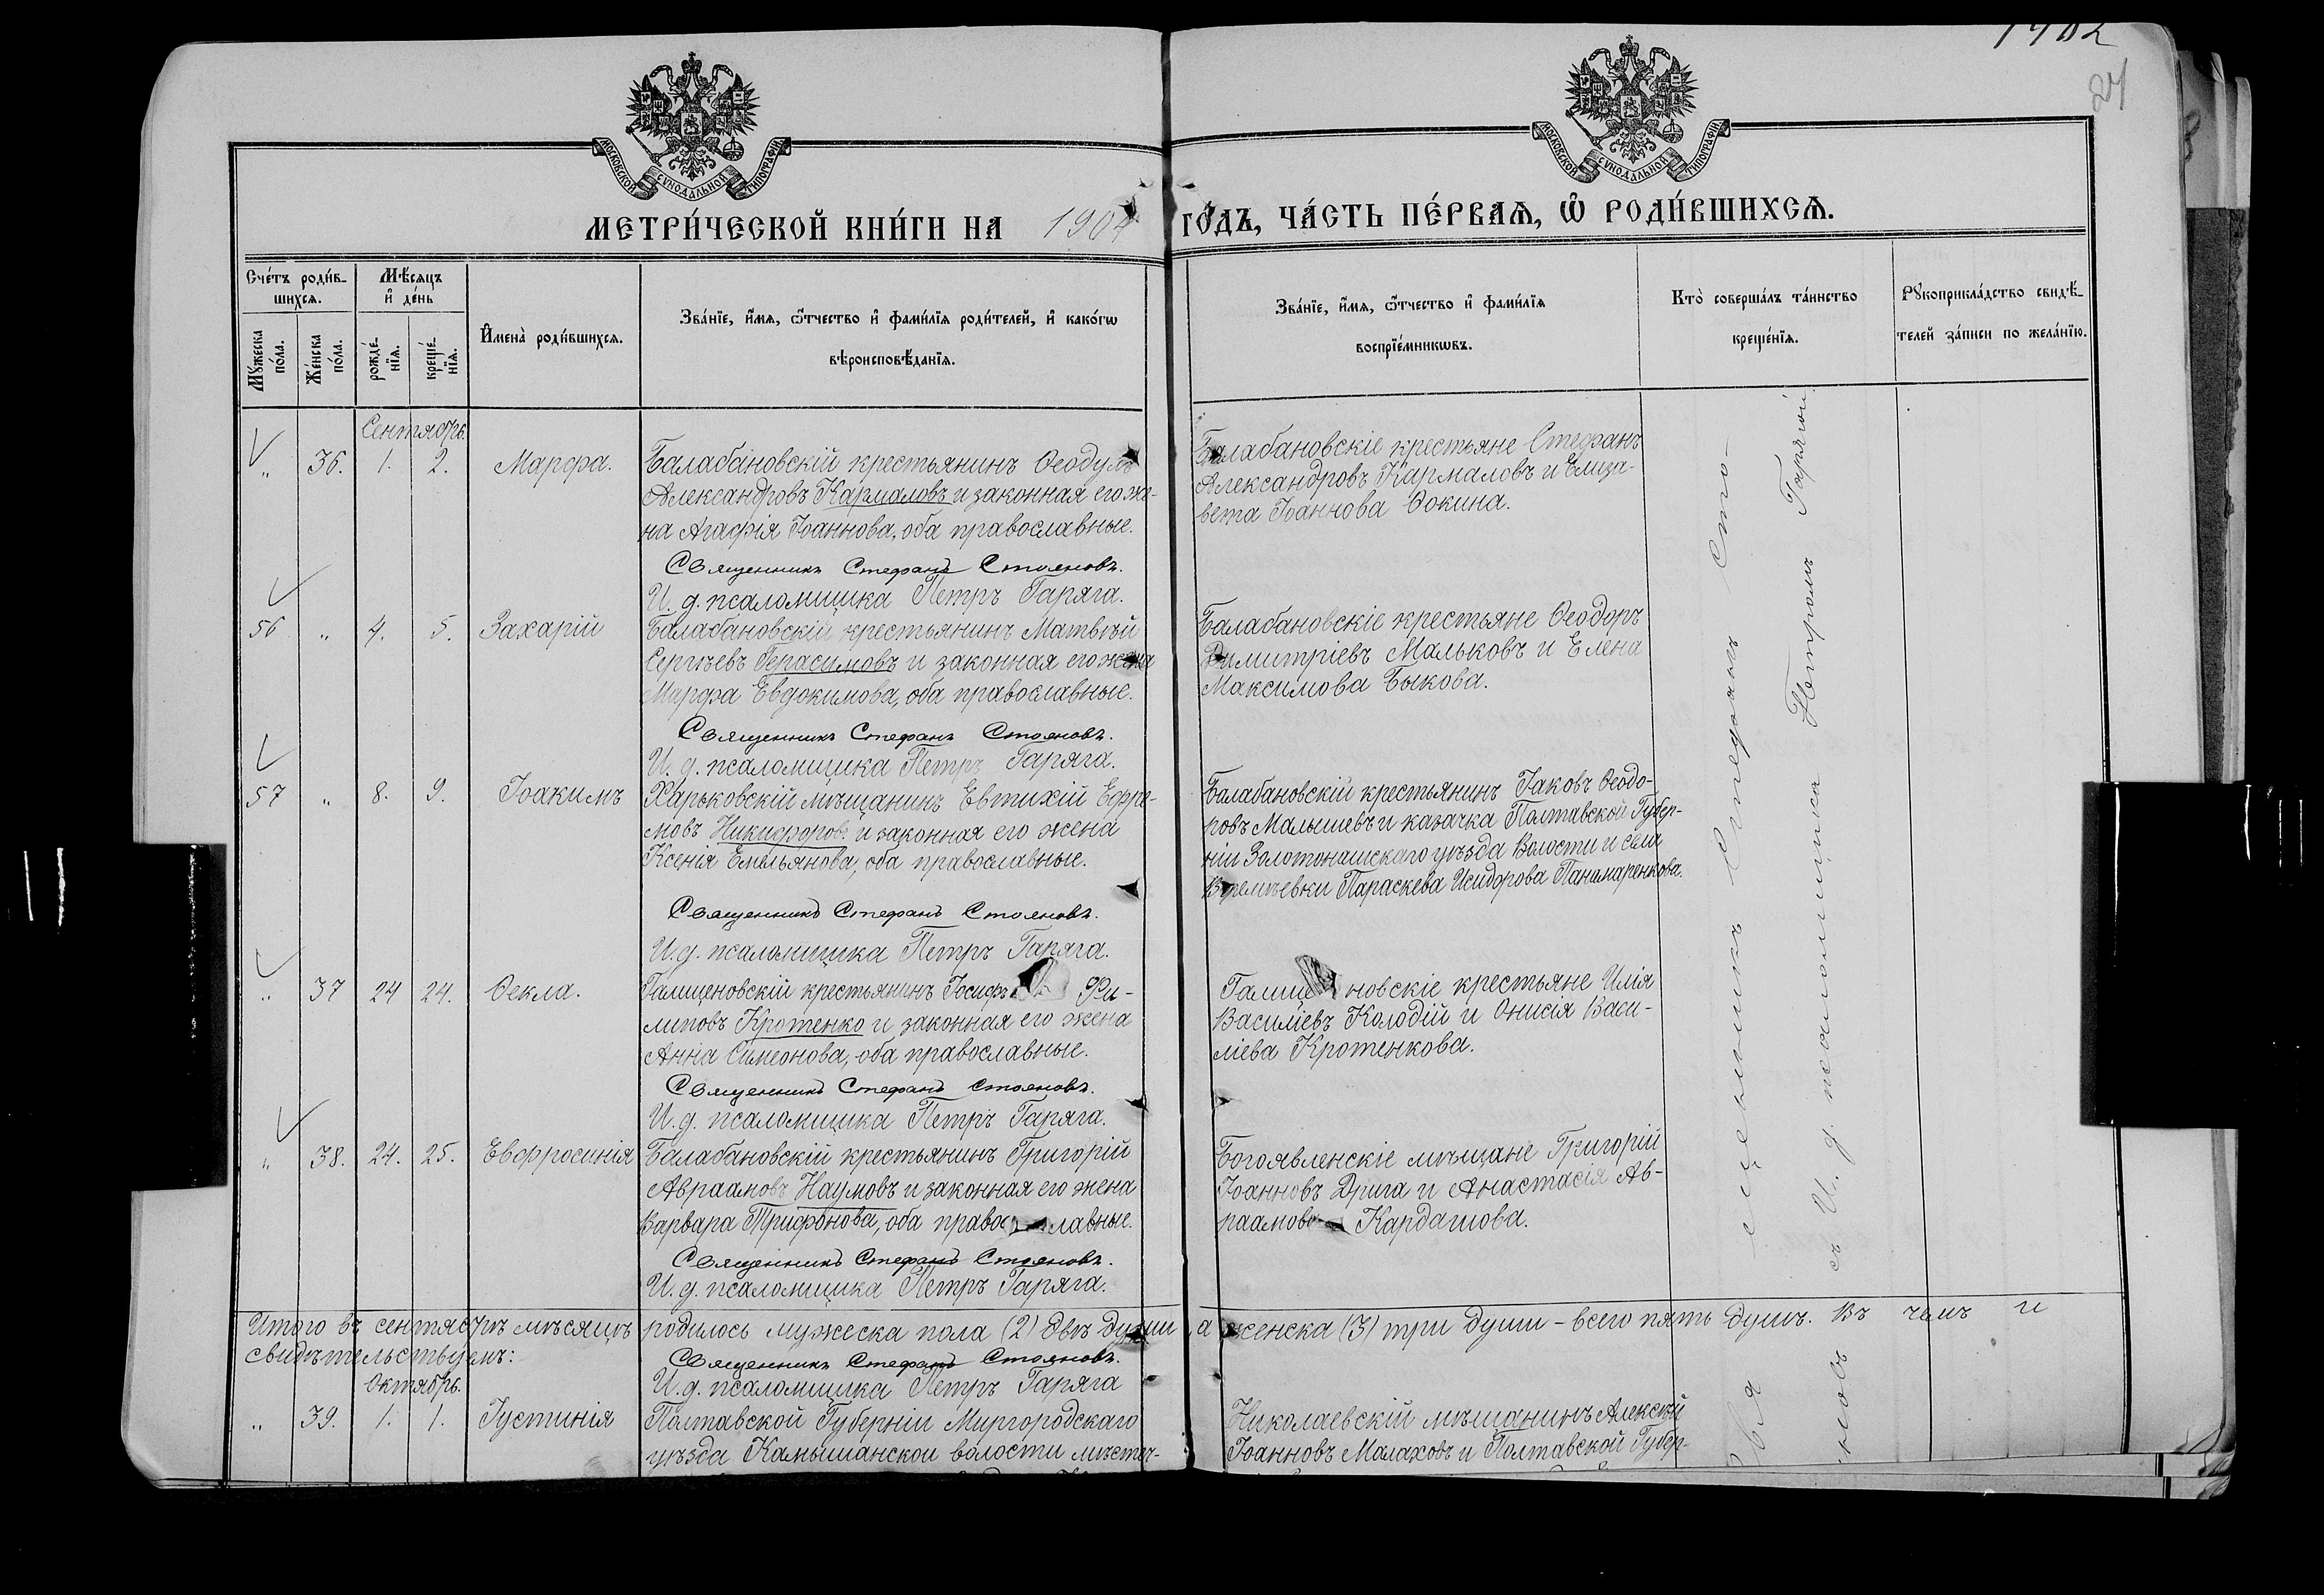 1902
27
МОСКОВСКОЙ СѴНОДАЛЬНОЙ ТИПОГРАФІИ
МОСКОВСКОЙ СѴНОДАЛЬНОЙ ТИПОГРАФІИ
МЕТРИ́ЧЕСКОЙ КНИ́ГИ НА 1904 ГО́ДЪ, ЧА́СТЬ ПЕ́РВАѦ, Ѡ҆ РОДИ́ВШИХСѦ.
Сче́тъ роди́в-
шихсѧ.
Мꙋ́жеска по́ла.
Же́нска по́ла.
Мѣ́сѧцъ
и҆ де́нь
рожде́-
нїѧ.
креще́-
нїѧ.
И҆мена̀ роди́вшихсѧ.
Зва́нїе, и҆́мѧ, ѻ҆́тчество и҆ фами́лїѧ роди́телей, и҆ како́гѡ
вѣроисповѣ́данїѧ.
Зва́нїе, и҆́мѧ, ѻ҆́тчество и҆ фами́лїѧ
воспрїе́мникѡвъ.
Кто̀ соверша́лъ та́инство
креще́нїѧ.
Рꙋкоприкла́дство свидѣ́-
телей за́писи по жела́нїю.
Сентябрь.
„ 36. 1. 2. Марфа.
Балабановскій крестьянинъ Ѳеодулъ
Александровъ Кармаловъ и законная его же-
на Агафія Іоаннова, оба православные.
Священникъ Стефанъ Стояновъ.
И. д. псаломщика Петръ Гаряга.
Балабановскіе крестьяне Стефанъ
Александровъ Кармаловъ и Елиза-
вета Іоаннова Ѳокина.
56 „ 4. 5. Захарій
Балабановскій крестьянинъ Матвѣй
Сергѣевъ Герасимовъ и законная его жена
Марфа Евдокимова, оба православные.
Священникъ Стефанъ Стояновъ.
И. д. псаломщика Петръ Гаряга.
Балабановскіе крестьяне Ѳеодоръ
Димитріевъ Мальковъ и Елена
Максимова Быкова.
57 „ 8. 9. Іоакимъ
Харьковскій мѣщанинъ Евтихій Ефре-
мовъ Никифоровъ и законная его жена
Ксенія Емельянова, оба православные.
Священникъ Стефанъ Стояновъ.
И. д. псаломщика Петръ Гаряга.
Балабановскій крестьянинъ Іаковъ Ѳеодо-
ровъ Малышевъ и казачка Полтавской Губер-
ніи Золотоношскаго уѣзда Волости и села
Еремѣевки Параскева Исидорова Панамаренкова.
„ 37 24 24. Ѳекла.
Галиценовскій крестьянинъ Іосифъ Фи-
липовъ Кротенко и законная его жена
Анна Симеонова, оба православные.
Священникъ Стефанъ Стояновъ.
И. д. псаломщика Петръ Гаряга.
Галице новскіе крестьяне Илія
Василіевъ Колодій и Онисія Васи-
ліева Кротенкова.
„ 38. 24. 25. Евфросинія
Балабановскій крестьянинъ Григорій
Авраамовъ Наумовъ и законная его жена
Варвара Трифонова, оба православные.
Священникъ Стефанъ Стояновъ.
И. д. псаломщика Петръ Гаряга.
Богоявленскіе мѣщане Григорій
Іоанновъ Дрига и Анастасія Ав-
раамова Кардашова.
Священникъ Стефанъ Сто-
яновъ съ И. д. псаломщика Петромъ Гарягой
Итого въ сентябрѣ мѣсяцѣ родилось мужеска пола (2) двѣ души, а женска (3) три души – всего пять душъ. Въ чемъ и
свидѣтельствуемъ:
Священникъ Стефанъ Стояновъ.
И. д. псаломщика Петръ Гаряга
Октябрь.
„ 39. 1. 1. Іустинія
Полтавской Губерніи Миргородскаго
уѣзда Камышанской волости мѣстеч-
Николаевскій мѣщанинъ Алексѣй
Іоанновъ Малаховъ и Полтавской Губер-